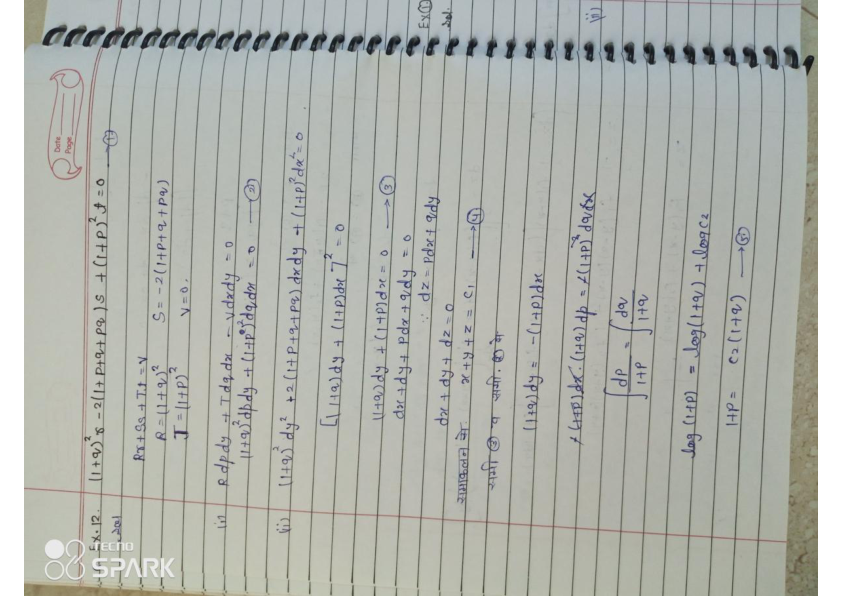 Date
Page
Ex. 12. (1+q)² r - 2(1+p+q+pq) s + (1+p)² t = 0 — (1)
Sol
Rr + Ss + Tt = V
R = (1+q)² S = -2(1+p+q+pq)
T = (1+p)² V = 0.
(i) R dp dy + T dq dx - V dx dy = 0
(1+q)² dp dy + (1+p)² dq dx = 0 — (2)
(ii) (1+q)² dy² + 2(1+p+q+pq) dx dy + (1+p)² dx² = 0
[(1+q) dy + (1+p) dx]² = 0
(1+q) dy + (1+p) dx = 0 → (3)
dx + dy + p dx + q dy = 0
∵ dz = p dx + q dy
dx + dy + dz = 0
समाकलन से x + y + z = c₁ → (4)
समी. (3) व समी. (2) से
(1+q) dy = -(1+p) dx
(1+p) dx · (1+q) dp = (1+p)² dq dx
∫ dp/(1+p) = ∫ dq/(1+q)
log (1+p) = log (1+q) + log c₂
1+p = c₂ (1+q) → (5)
Ex (1)
Sol.
(i)
TECNO
SPARK